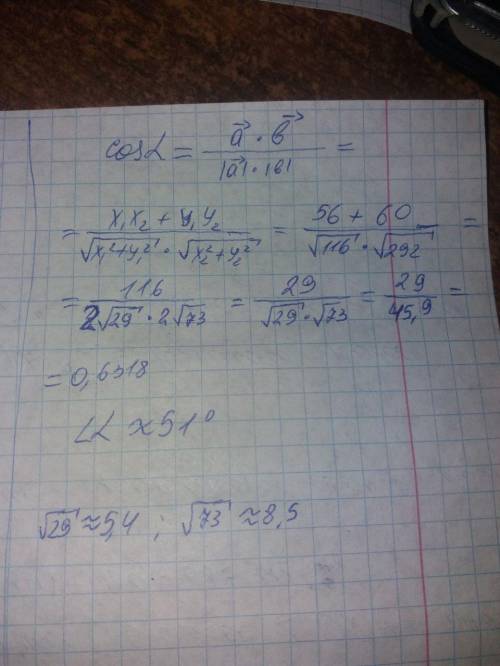 cosα = (a⃗ · b⃗) / (|a⃗| · |b|) =
= (x₁x₂ + y₁y₂) / (√(x₁²+y₁²) · √(x₂²+y₂²)) = (56 + 60) / (√116 · √292) =
= 116 / (2√29 · 2√73) = 29 / (√29 · √73) = 29 / 45,9 =
= 0,6318
∠α ≈ 51°
√29 ≈ 5,4 ; √73 ≈ 8,5